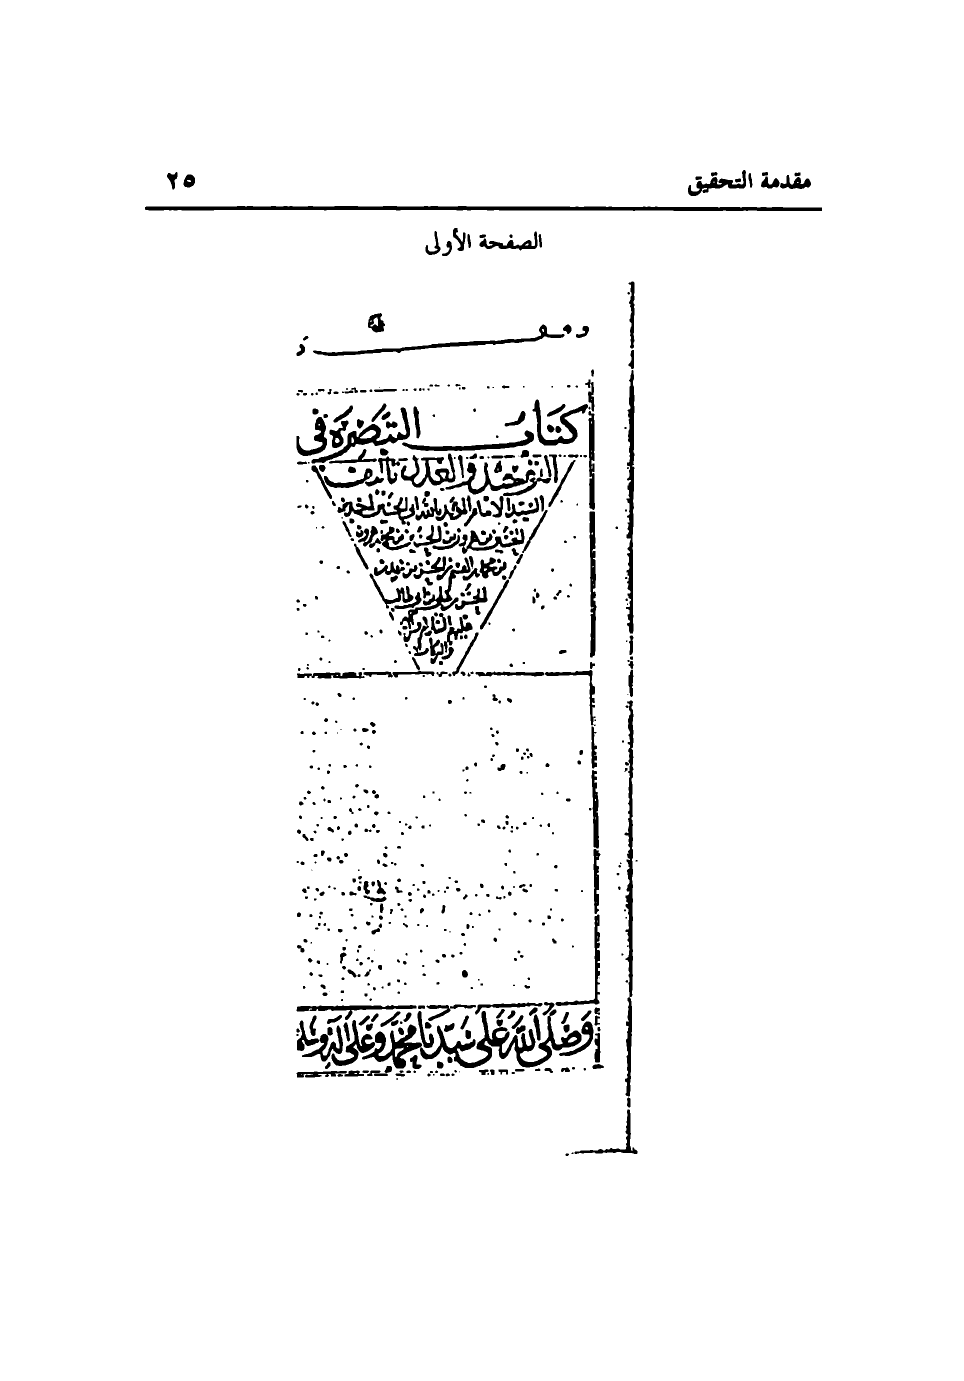 مقدمة التحقيق ٢٥
الصفحة الأولى
كتاب التبصرة في
التوحيد والعدل تأليف
السيد الامام المؤيد بالله ابي الحسين احمد بن
الحسين بن هرون بن الحسين بن محمد بن هرون
بن محمد بن القسم بن الحسن بن زيد بن
الحسن بن علي بن ابي طالب
عليهم السلام
والبركات
وصلى الله على سيدنا محمد وعلى آله وسلم